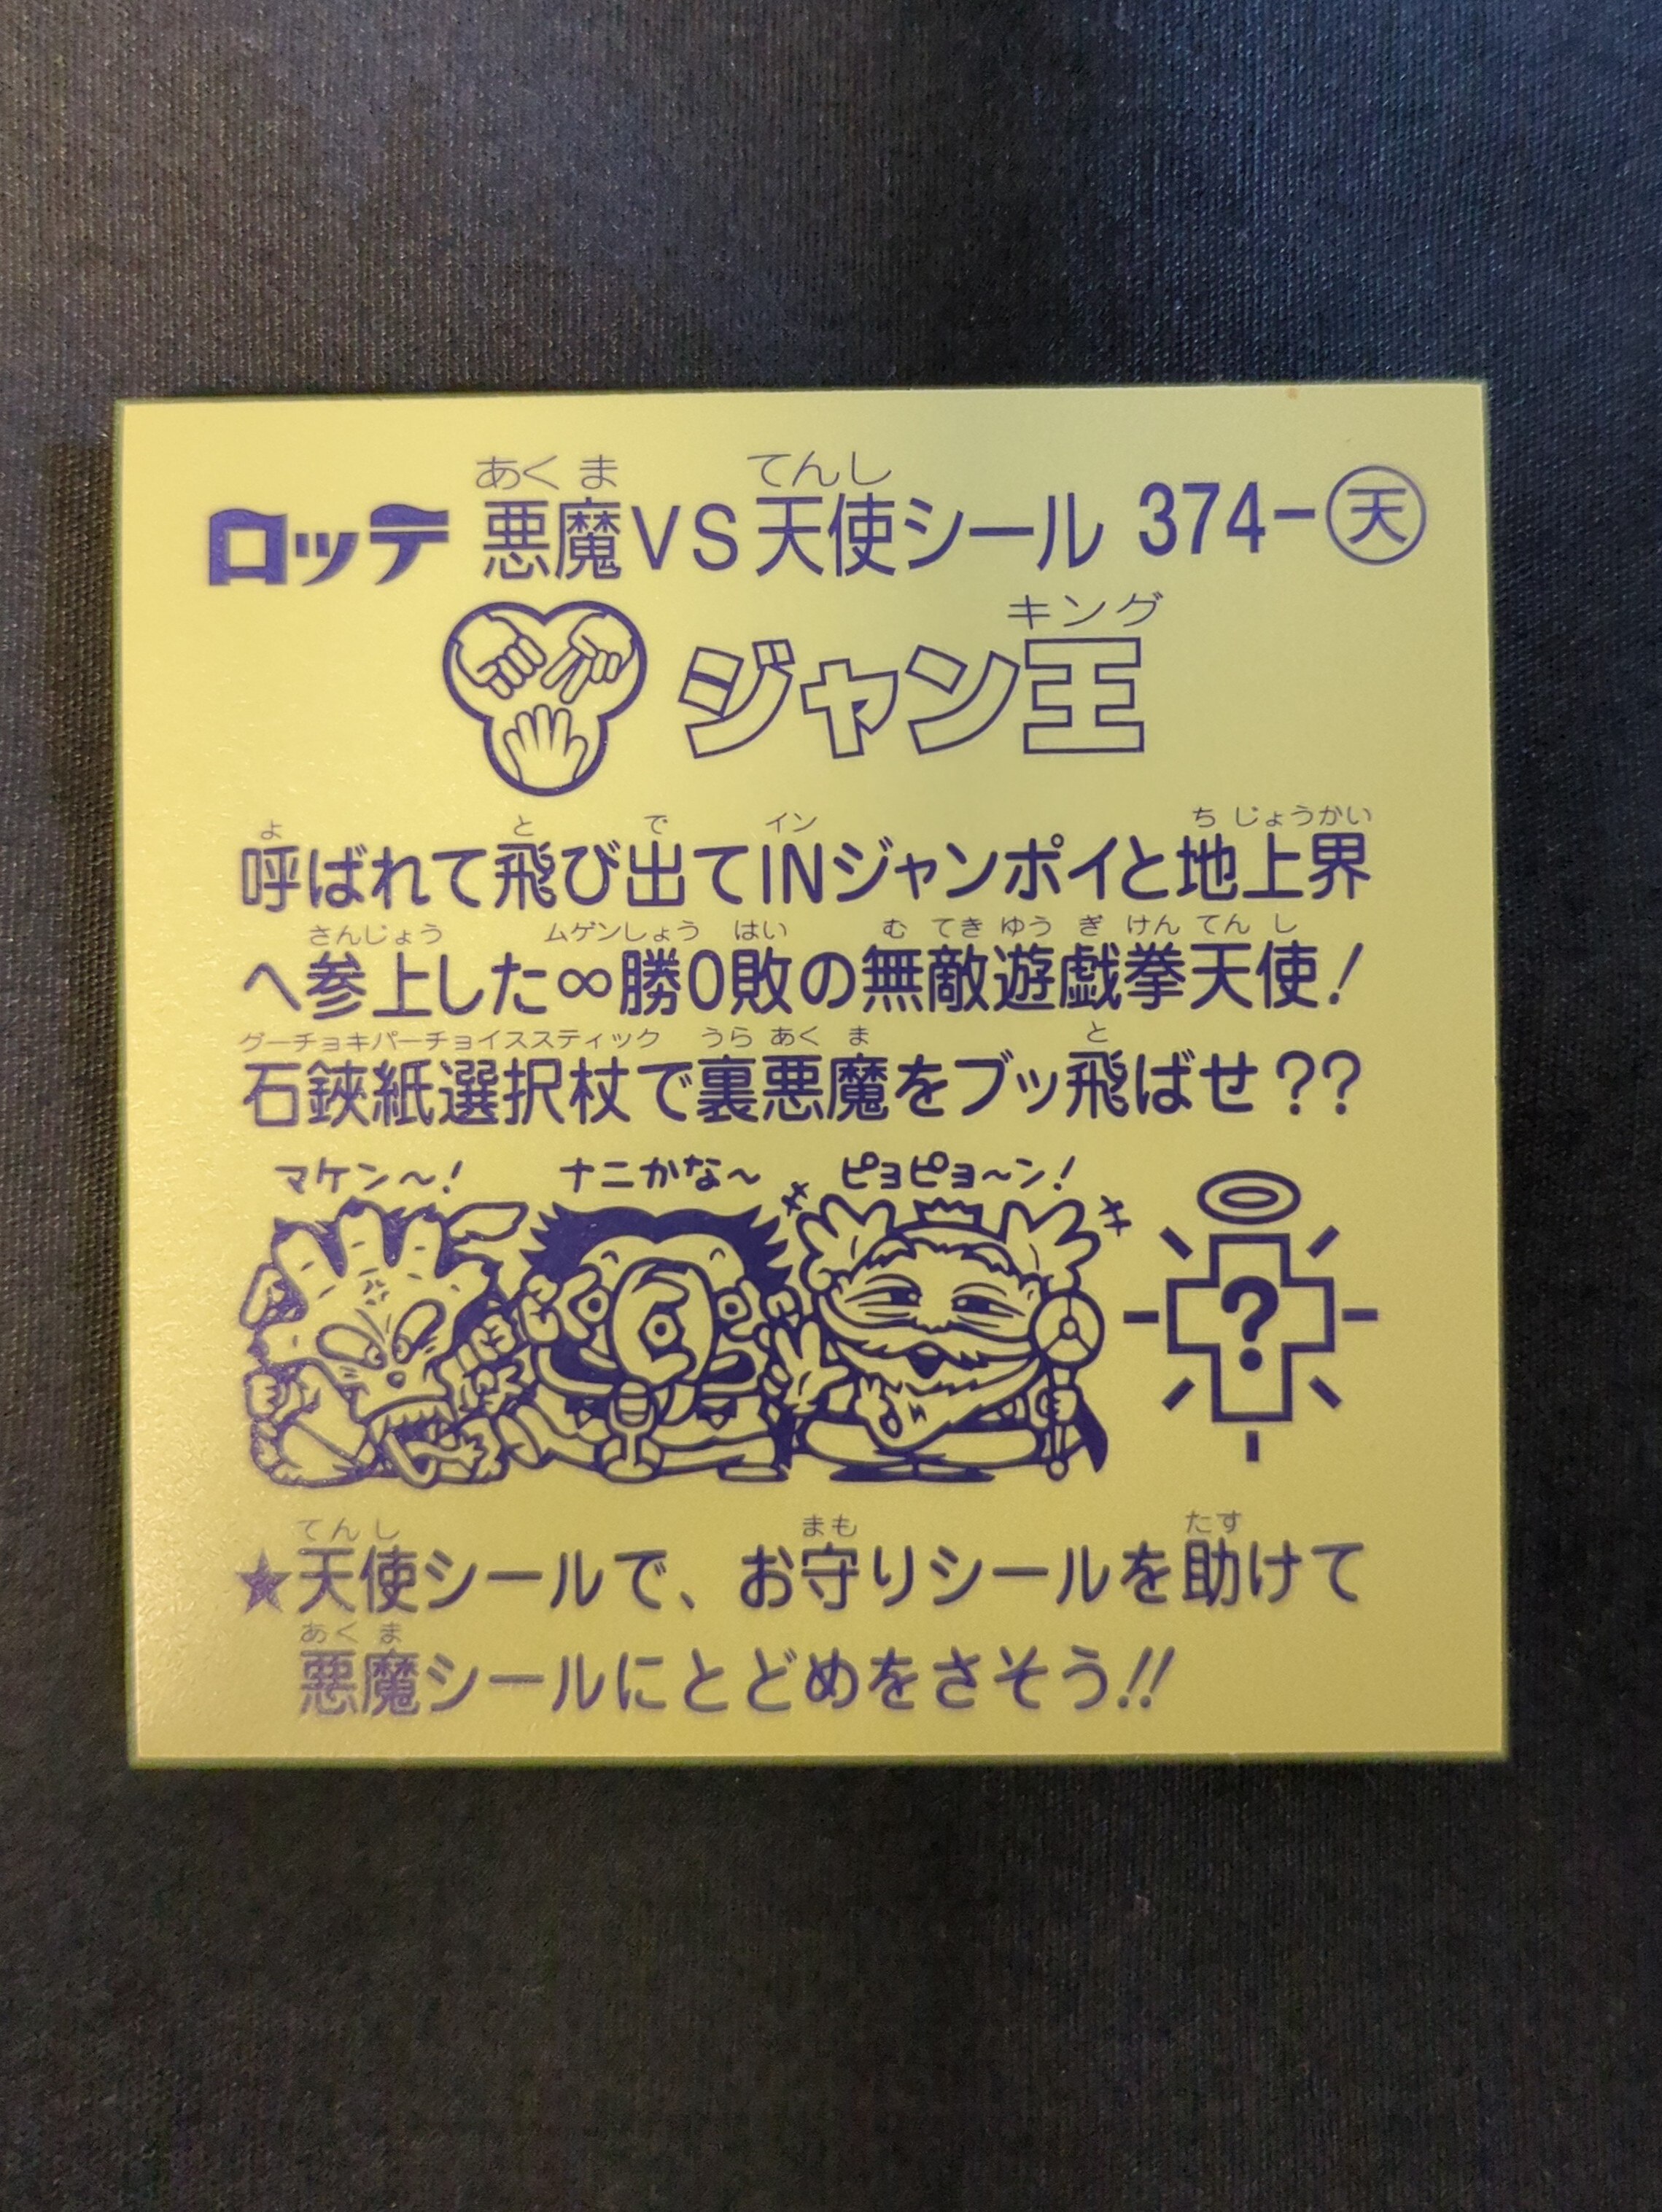 あくま てんし
ロッテ 悪魔VS天使シール 374-天
キング
ジャン王
よ と で イン ち じょうかい
呼ばれて飛び出てINジャンポイと地上界
さんじょう ムゲンしょう はい む てき ゆう ぎ けん てん し
へ参上した∞勝0敗の無敵遊戯拳天使!
グーチョキパーチョイススティック うら あく ま と
石鋏紙選択杖で裏悪魔をブッ飛ばせ??
マケン〜! ナニかな〜 ピョピョ〜ン!
?
てんし まも たす
★天使シールで、お守りシールを助けて
あく ま
悪魔シールにとどめをさそう!!